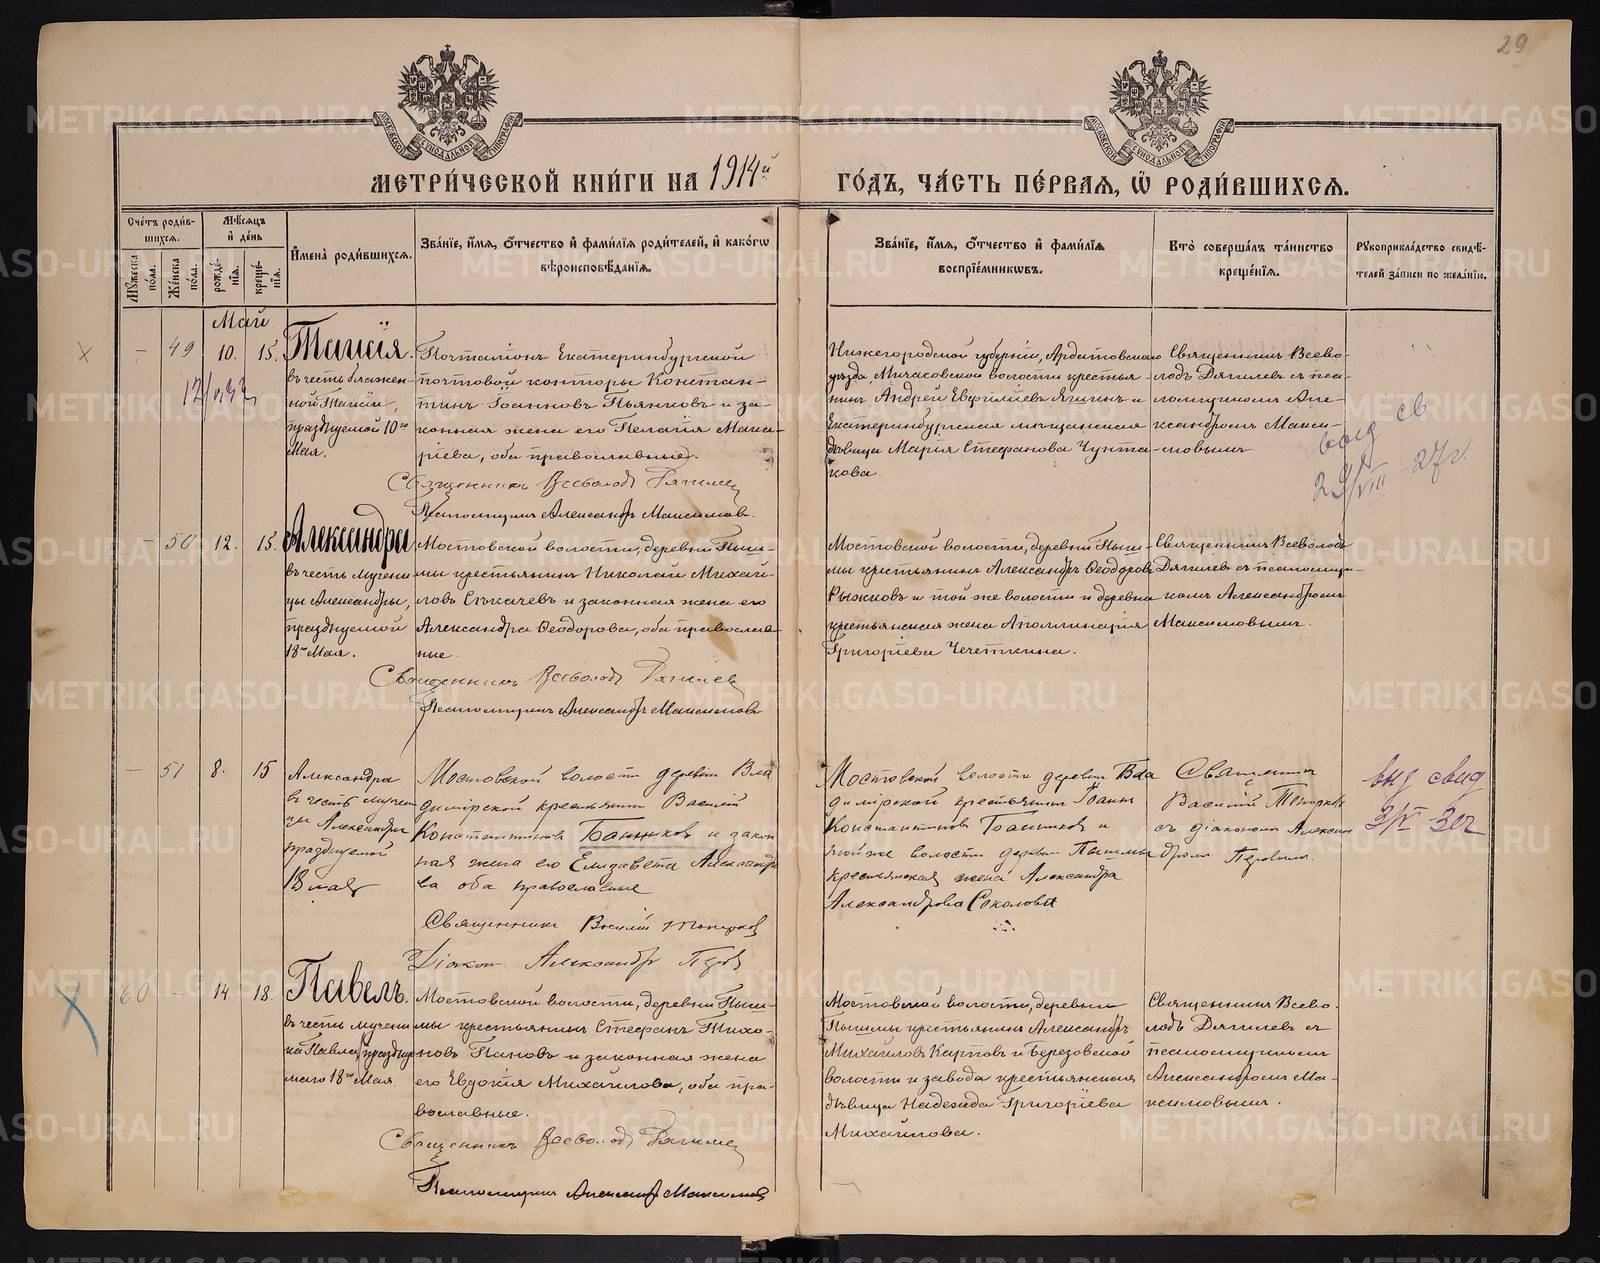 29
МОСКОВСКОЙ СѴНОДАЛЬНОЙ ТИПОГРАФІИ
МОСКОВСКОЙ СѴНОДАЛЬНОЙ ТИПОГРАФІИ
МЕТРИ́ЧЕСКОЙ КНИ́ГИ НА 1914й ГО́ДЪ, ЧА́СТЬ ПЕ́РВАЯ, Ѽ РОДИ́ВШИХСЯ.
Сче́тъ роди́в-
шихся.
Мѣ́сяцъ
и҆ де́нь
Мꙋ́жеска по́ла.
Же́нска по́ла.
рожде́-
нїя.
креще́-
нїя.
И҆мена̀ роди́вшихся.
Зва́нїе, и҆́мя, ѻ҆́тчество и҆ фами́лїя роди́телей, и҆ како́гѡ
вѣроисповѣ́данїя.
Зва́нїе, и҆́мя, ѻ҆́тчество и҆ фами́лїя
воспрїе́мникѡвъ.
Кто̀ соверша́лъ та́инство
креще́нїя.
Рꙋкоприкла́дство свидѣ́-
телей за́писи по жела́нїю.
Май
– 49 10. 15.
Таисія.
въ честь блажен-
ной Таисіи,
празднуемой 10го
Мая.
Почталіонъ Екатеринбургской
почтовой конторы Констан-
тинъ Іоанновъ Пьянковъ и за-
конная жена его Пелагія Мака-
ріева, оба православные.
Священникъ Всеволодъ Дягилев
Псаломщикъ Александръ Максимов.
Нижегородской губерніи, Ардатовскаго
уѣзда, Личадовской волости крестья-
нинъ Андрей Евфиліевъ Яшинъ и
Екатеринбургская мѣщанская
дѣвица Марія Стефанова Чупта-
кова.
Священникъ Всево-
лодъ Дягилевъ съ пса-
ломщикомъ Але-
ксандромъ Макси-
мовымъ
выд св
29/VIII 27г.
– 50 12. 15.
Александра
въ честь мучени-
цы Александры,
празднуемой
18го Мая.
Мостовской волости, деревни Пыш-
мы крестьянинъ Николай Михай-
ловъ Сѣкачевъ и законная жена его
Александра Ѳеодорова, оба православ-
ные.
Священникъ Всеволодъ Дягилев
Псаломщикъ Александръ Максимовъ
Мостовской волости, деревни Пыш-
мы крестьянинъ Александръ Ѳеодоровъ
Рыжковъ и той же волости и деревни
крестьянская жена Аполлинарія
Григоріева Чечеткина.
Священникъ Всеволодъ
Дягилевъ съ псаломщи-
комъ Александромъ
Максимовымъ.
– 51 8. 15
Александра
въ честь мучени
цы Александры
празднуемой
18 мая
Мостовской волости деревни Вла
димірской крестьянинъ Василій
Константиновъ Банниковъ и закон
ная жена его Елизавета Александро
ва оба православные
Священникъ Василій Топорков
Діакон Александръ Перов
Мостовской волости деревни Вла
димірской крестьянинъ Іоаннъ
Константиновъ Банниковъ и
той же волости деревни Пышмы
крестьянская жена Александра
Александрова Соколова
Священникъ
Василій Топорков
съ діакономъ Алексан
дромъ Перовымъ.
выд. свид
3/V 30г
60 – 14 18.
Павелъ.
въ честь мучени-
ка Павла, праздну-
емаго 18го Мая.
Мостовской волости, деревни Пыш-
мы крестьянинъ Стефанъ Тихо-
новъ Пановъ и законная жена
его Евдокія Михайлова, оба пра-
вославные.
Священникъ Всеволодъ Дягилев
Псаломщикъ Александръ Максимовъ
Мостовской волости, деревни
Пышмы крестьянинъ Александръ
Михайловъ Карповъ и Березовской
волости и завода крестьянская
дѣвица Надежда Григоріева
Михайлова.
Священникъ Всево-
лодъ Дягилевъ съ
псаломщикомъ
Александромъ Ма-
ксимовымъ.
METRIKI.GASO-URAL.RU